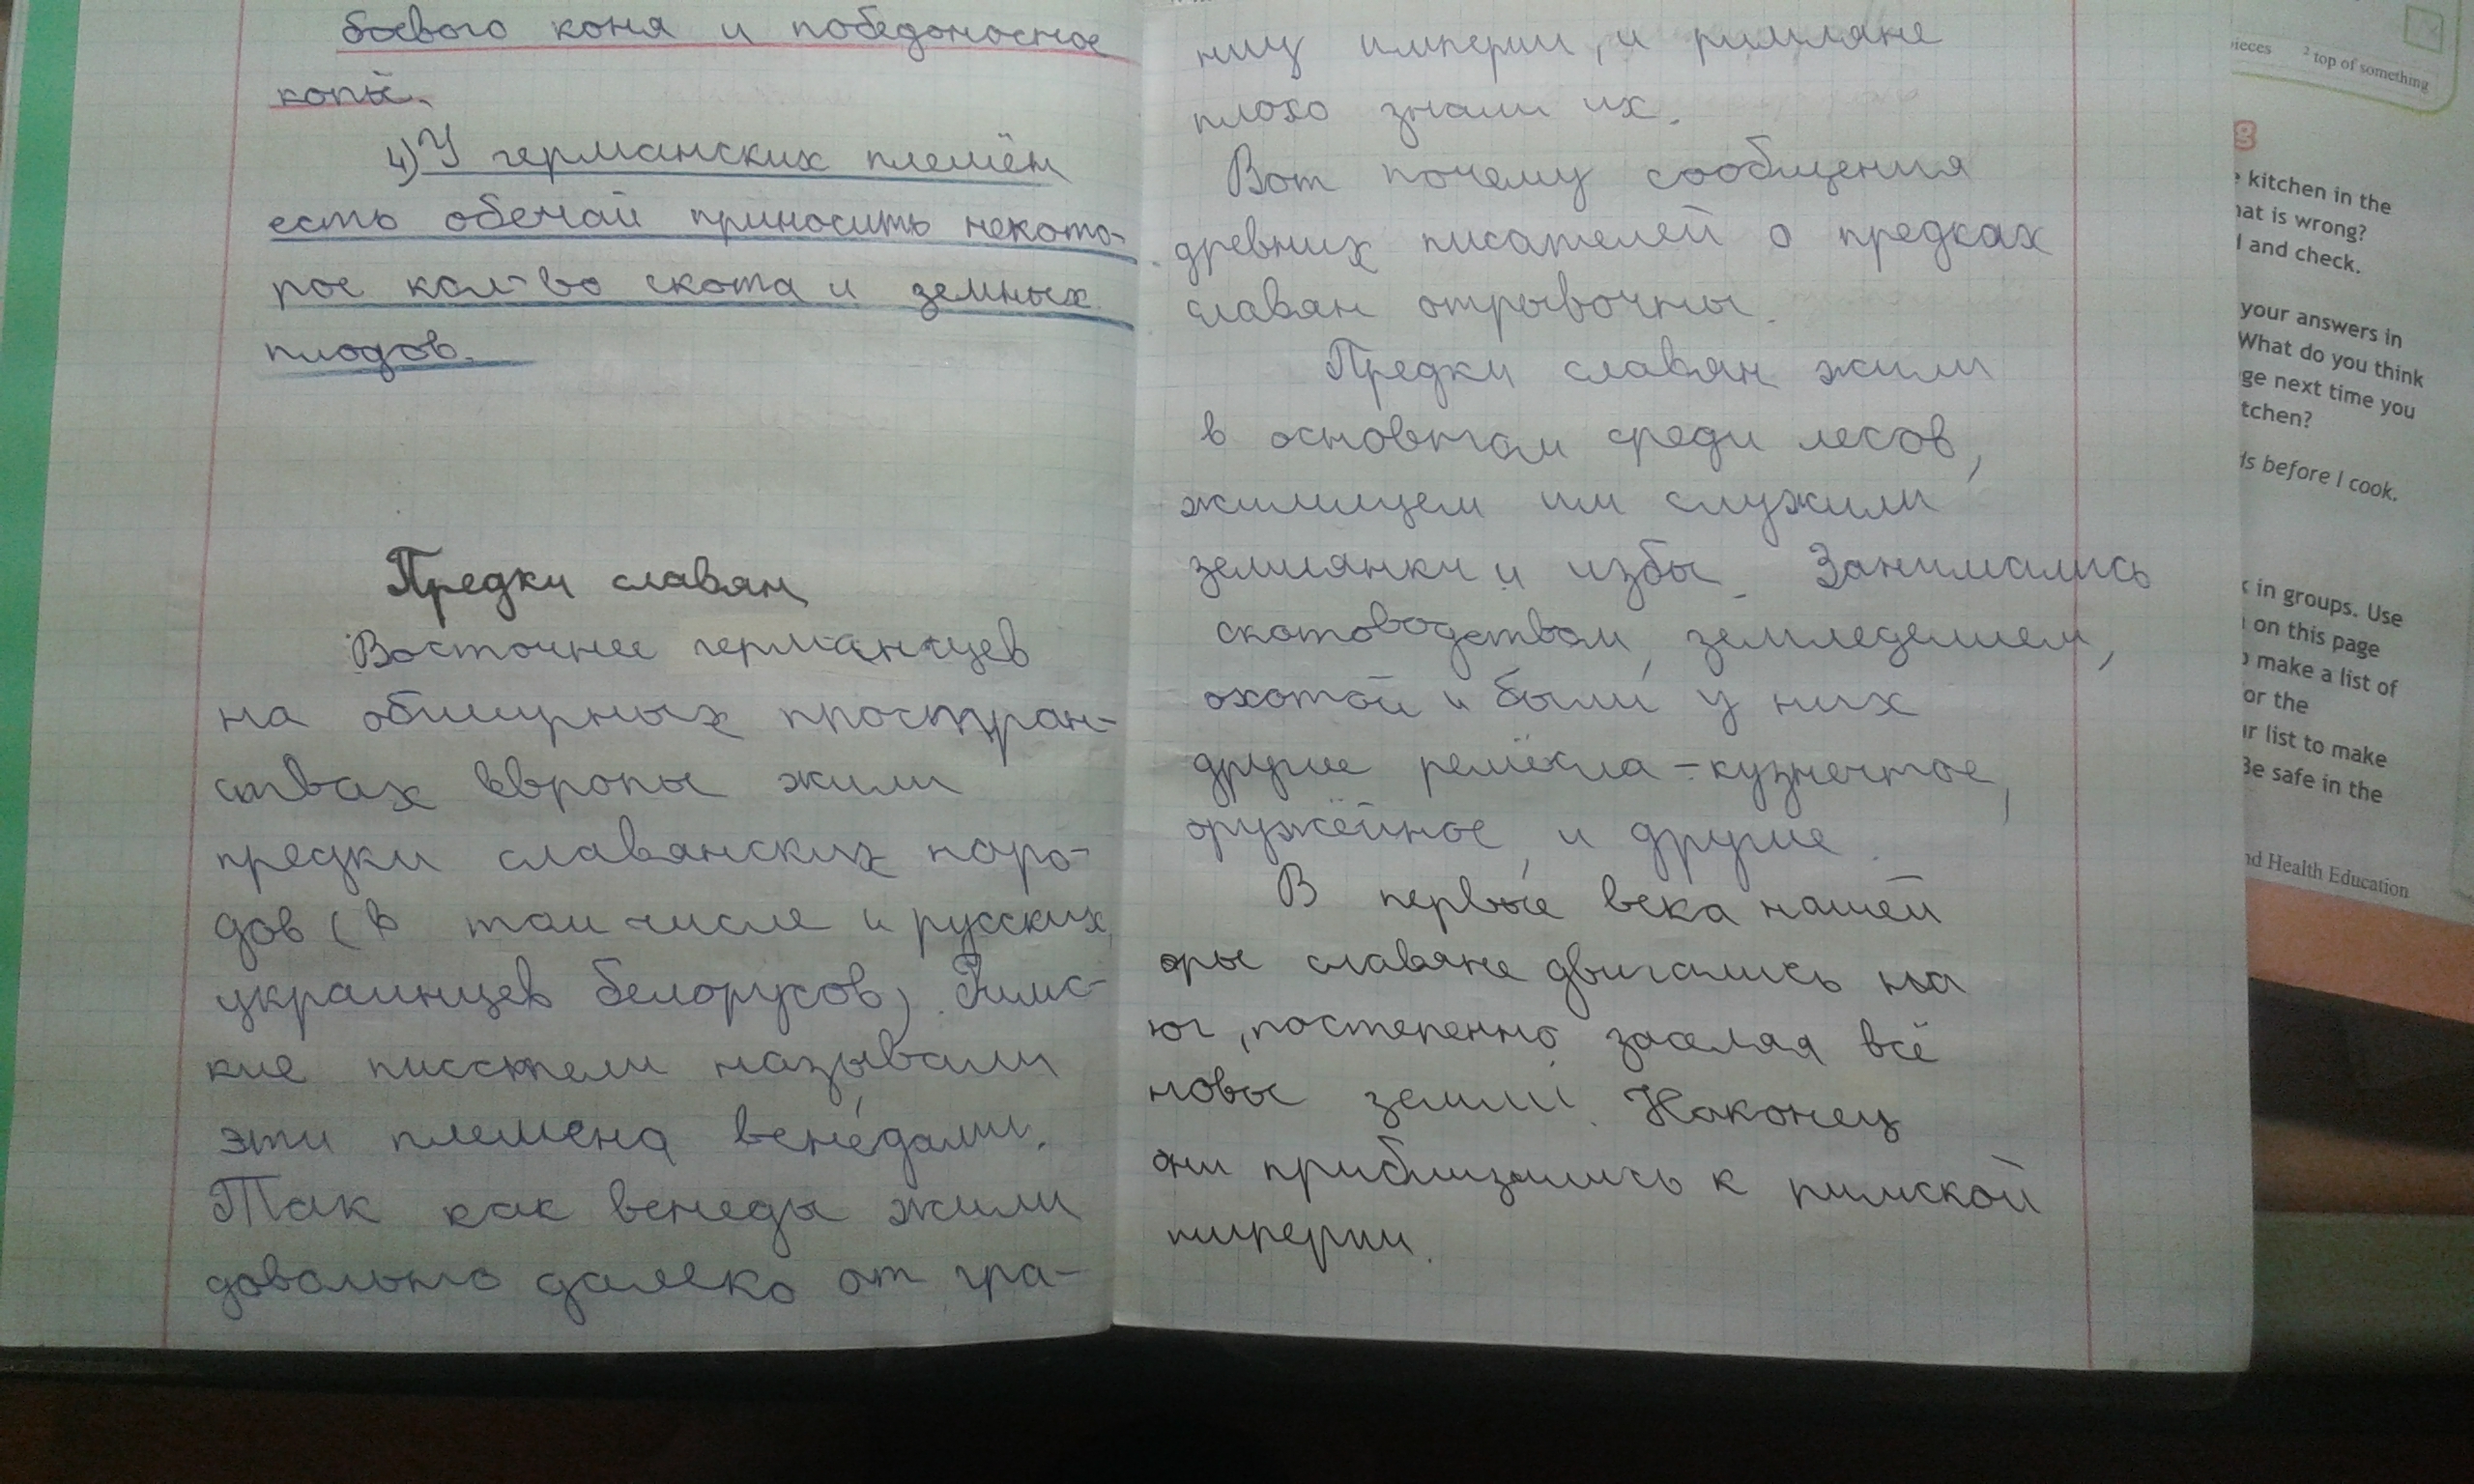 боевого коня и победоносное
копьё.
4) У германских племён
есть обечай приносить некото-
рое кол-во скота и земных
плодов.
Предки славян
Восточнее германцев
на обширных простран-
ствах Европы жили
предки славянских наро-
дов (в том числе и русских,
украинцев белорусов). Римс-
кие писатели называли
эти племена венедами.
Так как венеды жили
довольно далеко от гра-
ниц империи, и римляне
плохо знали их.
Вот почему сообщения
древних писателей о предках
славян отрывочны.
Предки славян жили
в основном среди лесов,
жилищем им служили
землянки и избы. Занимались
скотоводством, земледелием,
охотой и были у них
другие ремёсла - кузнечное,
оружейное, и другие.
В первые века нашей
эры славяне двигались на
юг, постепенно заселяя всё
новые земли. Наконец
они приблизились к римской
империи.
ieces
² top of something
g
kitchen in the
hat is wrong?
and check.
your answers in
What do you think
ge next time you
tchen?
ds before I cook.
in groups. Use
on this page
make a list of
or the
ur list to make
Be safe in the
nd Health Education